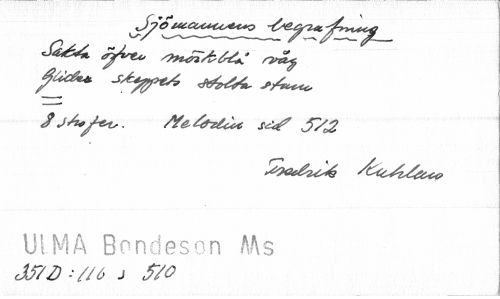 Sjömannens begrafning
Sakta öfver mörkblå våg
Glider skeppets stolta stam
8 strofer. Melodin sid 512
Fredrik Kuhlau
ULMA Bondeson Ms
351D:116 s 510